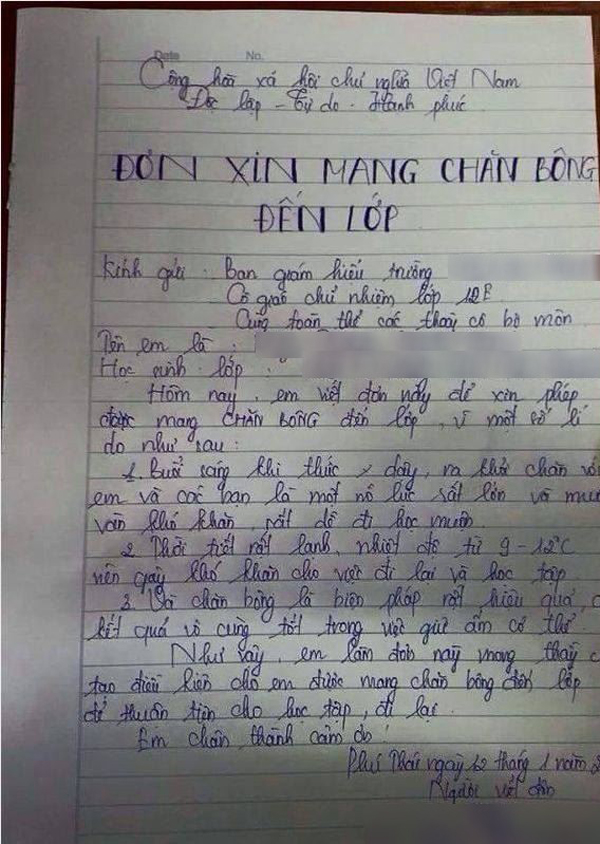 Date No.
Cộng hoà xã hội chủ nghĩa Việt Nam
Độc lập - Tự do - Hạnh phúc
ĐƠN XIN MANG CHĂN BÔNG
ĐẾN LỚP
Kính gửi : Ban giám hiệu trường
Cô giáo chủ nhiệm lớp 12E
Cùng toàn thể các thầy cô bộ môn
Tên em là :
Học sinh lớp :
Hôm nay, em viết đơn nầy để xin phép
được mang CHĂN BÔNG đến lớp, vì một số lí
do như sau :
1. Buổi sáng khi thức dậy, ra khỏi chăn với
em và các bạn là một nỗ lực rất lớn và
vàn khó khăn, rất dễ đi học muộn.
2. Thời tiết rất lạnh, nhiệt độ từ 9 - 12°C
nên gây khó khăn cho việc đi lại và học tập
3. Và chăn bông là biện pháp rất hiệu quả,
kết quả vô cùng tốt trong việc giữ ấm cơ thể
Như vậy, em làm đơn này mong thầy
tạo điều kiện cho em được mang chăn bông đến lớp
để thuận tiện cho học tập, đi lại.
Em chân thành cảm ơn !
Phú Thái ngày 12 tháng 1 năm
Người viết đơn